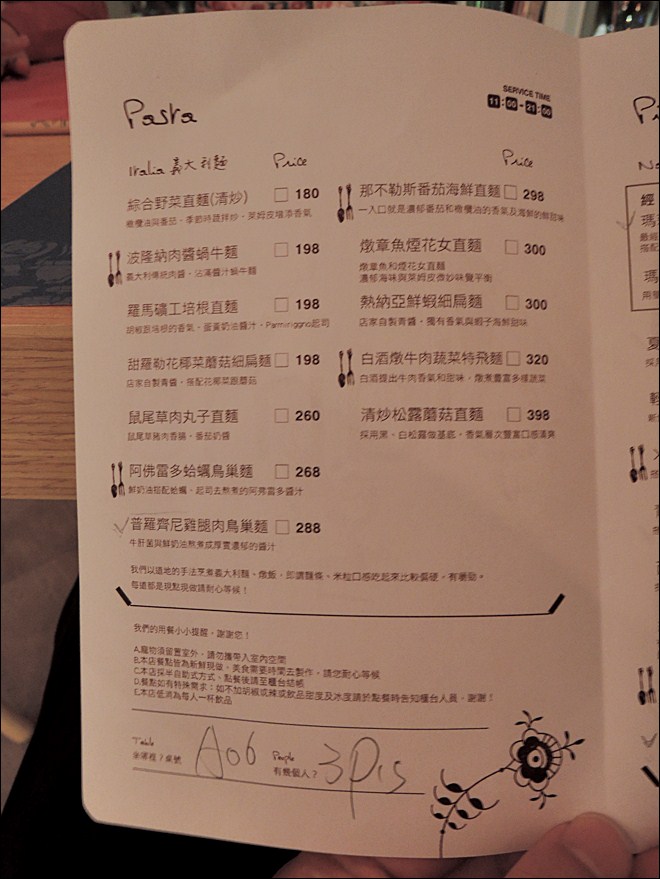 Pasta
SERVICE TIME
11:00-21:00
Italia 義大利麵 Price
綜合野菜直麵(清炒) 180
橄欖油與番茄、季節時蔬拌抄、萊姆皮增添香氣
波隆納肉醬蝸牛麵 198
義大利傳統肉醬、沾滿醬汁蝸牛麵
羅馬礦工培根直麵 198
胡椒跟培根的香氣、蛋黃奶油醬汁、Parmiriggno起司
甜羅勒花椰菜蘑菇細扁麵 198
店家自製青醬、搭配花椰菜跟蘑菇
鼠尾草肉丸子直麵 260
鼠尾草豬肉香腸、番茄奶醬
阿佛雷多蛤蠣鳥巢麵 268
鮮奶油搭配蛤蠣、起司去熬煮的阿弗雷多醬汁
普羅齊尼雞腿肉鳥巢麵 288
牛肝菌與鮮奶油熬煮成厚實濃郁的醬汁
Price
那不勒斯番茄海鮮直麵 298
一入口就是濃郁番茄和橄欖油的香氣及海鮮的鮮甜味
燉章魚煙花女直麵 300
燉章魚和煙花女直麵
濃郁海味與萊姆皮微妙味覺平衡
熱納亞鮮蝦細扁麵 300
店家自製青醬、獨有香氣與蝦子海鮮甜味
白酒燉牛肉蔬菜特飛麵 320
白酒提出牛肉香氣和甜味、燉煮豐富多樣蔬菜
清炒松露蘑菇直麵 398
採用黑、白松露做基底、香氣層次豐富口感清爽
我們以道地的手法烹煮義大利麵、燉飯，即謂麵條、米粒口感吃起來比較偏硬，有嚼勁。
每道都是現點現做請耐心等候！
我們的用餐小小提醒，謝謝您！
A.寵物須留置室外，請勿攜帶入室內空間
B.本店餐點皆為新鮮現做，美食需要時間去製作，請您耐心等候
C.本店採半自助式方式，點餐後請至櫃台結帳
D.餐點如有特殊需求：如不加胡椒或辣或飲品甜度及冰度請於點餐時告知櫃台人員，謝謝！
E.本店低消為每人一杯飲品
Table People
坐哪裡？桌號 A06 有幾個人？ 3P's